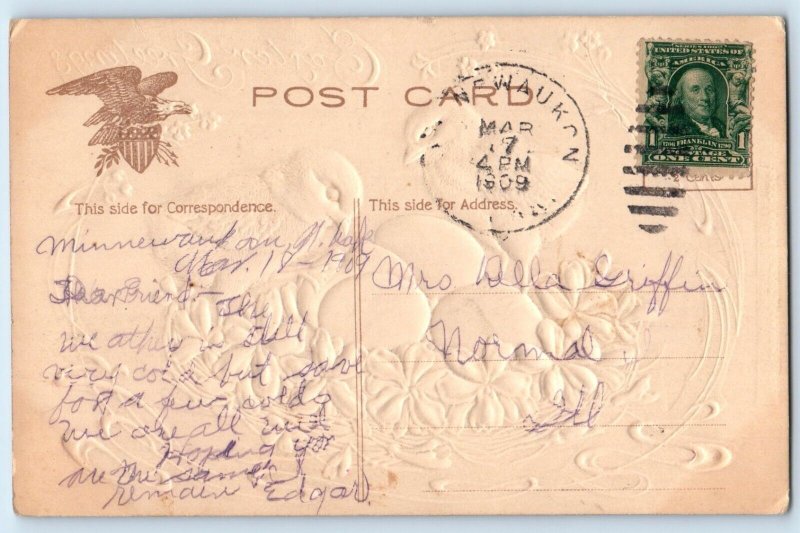 Easter Greetings
POST CARD
EWAUKON
MAR
17
4 PM
1909
SERIES 1902
UNITED STATES OF
AMERICA
1706 FRANKLIN 1790
1 POSTAGE 1
ONE CENT
This side for Correspondence.
This side for Address.
Minnewaukon, N. Dak
Mar. 18 - 1909
Dear Friend - The
weather is still
very cold but save
for a few colds
we are all well
Hoping you
are the same I
remain Edgar.
Mrs Della Griffin
Normal
Ill